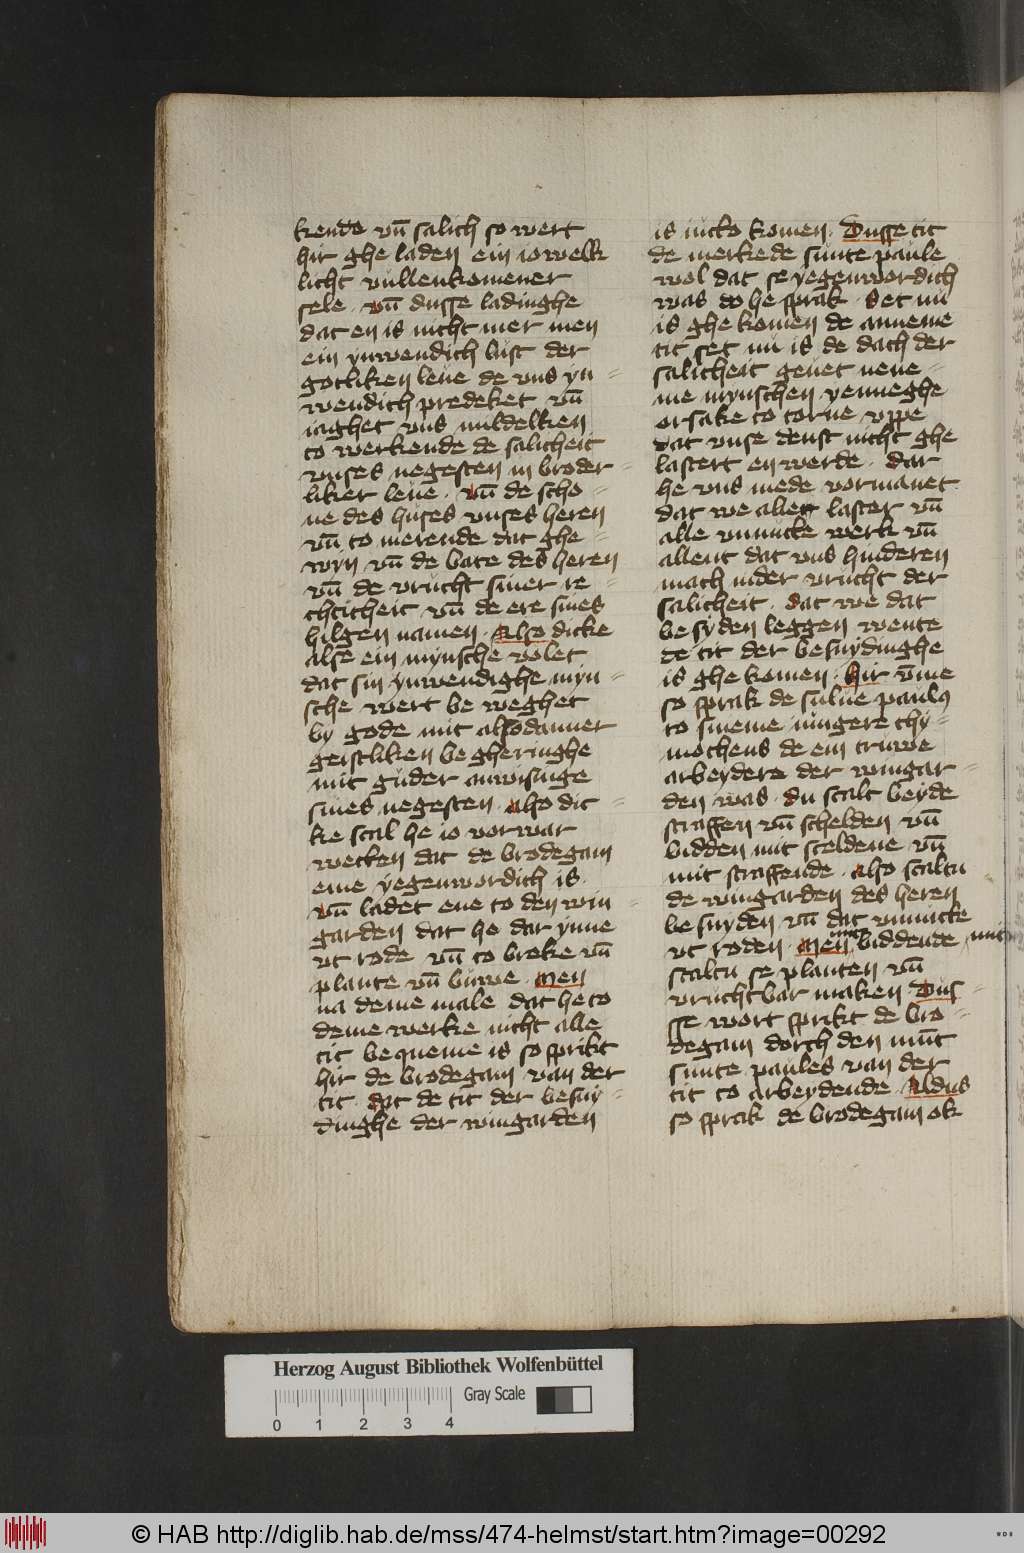 kende vn̄ salich so wert
hir ghe laden ein iowelk
licht vullenkomener
sele . vn̄ dusse ladinghe
dat en is nicht mer men
ein ynwendich lust der
gotliken leue de vns yn =
wendich predeket vn̄
iaghet vns mildelken
to werkende de salicheit
vnses negesten in broder =
liker leue . vn̄ de scho =
ne des huses vnses heren
vn̄ to merende dat ghe =
wyn vn̄ de bate des heren
vn̄ de vrucht siner re =
chticheit vn̄ de ere sines
hilgen namen . Also dicke
alse ein mynsche volet
dat sin ynwendighe myn =
sche wert be weghet
by gode mit alsodanner
geistliken be gheringhe
mit guder anwisinge
sines negesten . also dic =
ke scal he io vorwar
wecken dat de brodegam
eme yegenwordich is .
vn̄ ladet ene to den win =
garden dat he dar ynne
vt rode vn̄ to breke vn̄
plante vn̄ buwe . Men
na deme male dat he to
deme werke nicht alle
tit bequeme is so sprikt
hir de brodegam van der
tit . dat de tit der besny =
dinghe der wingarden
is nicko komen . Dusse tit
de merkede sunte paule
wol dat se yegenwordich
was do he sprak . Set nu
is ghe komen de anneme
tit set nu is de dach der
salicheit geuet nene =
me mynschen yenneghe
orsake to torne vppe
dat vnse denst nicht ghe
lastert en werde . dar
he vns mede vormanet
dat we allent laster vn̄
alle vnnutte werk vn̄
allent dat vns hinderen
mach in der vrucht der
salicheit . dat we dat
be syden leggen wente
de tit der besnydinghe
is ghe komen . Hir v̄me
so sprak de sulue paulus
to sineme iungere thy =
motheus de ein truwe
arbeydere der wingar =
den was . du scalt beyde
straffen vn̄ schelden vn̄
bidden mit sceldene vn̄
mit straffende . also scaltu
de wingarden des heren
be snyden vn̄ dat vnnutte
vt roden . Men mit biddende mit
scaltu se planten vn̄
vruchtbar maken Dus =
sse wort sprikt de bro =
degam dorch den mūt
sunte paules van der
tit to arbeydende . Aldus
so sprak de brodegam ok
Herzog August Bibliothek Wolfenbüttel
Gray Scale
0 1 2 3 4
© HAB http://diglib.hab.de/mss/474-helmst/start.htm?image=00292